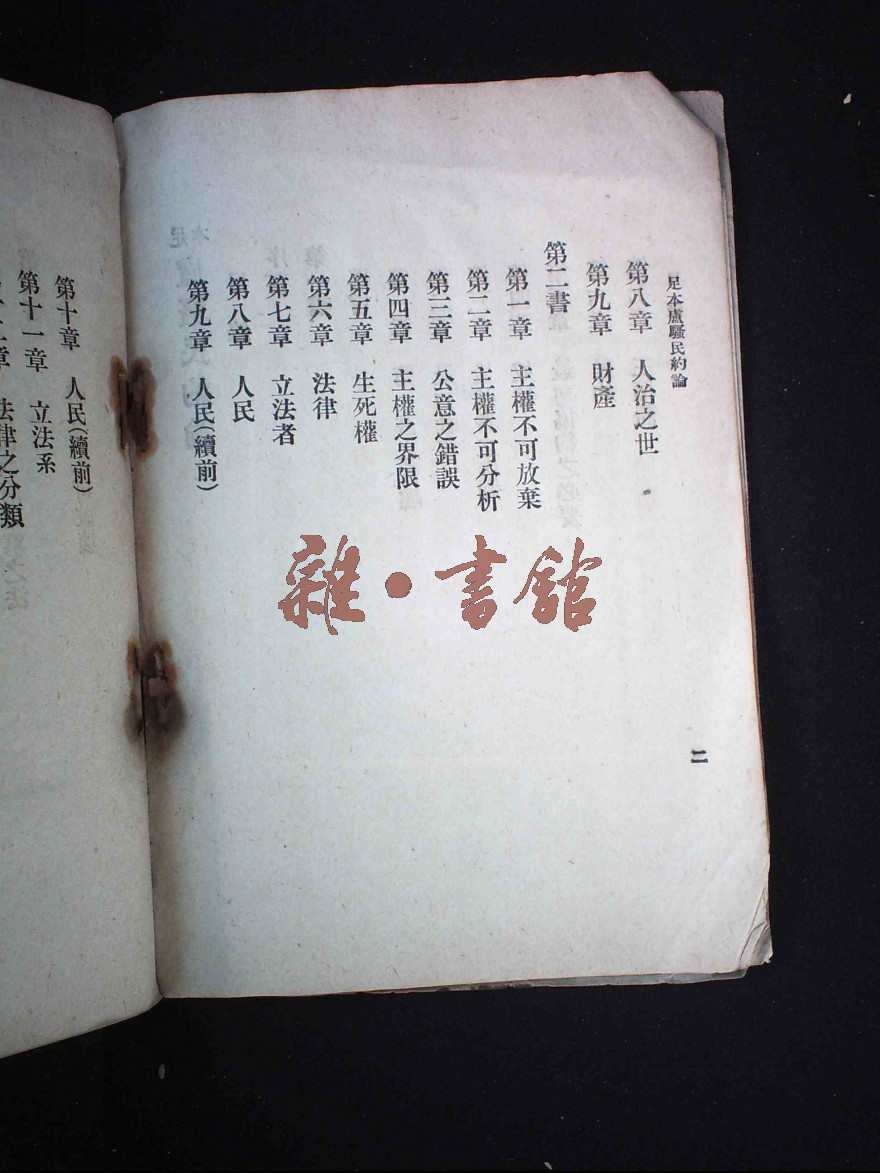 足本盧騷民約論
第八章 人治之世
第九章 財產
第二書
第一章 主權不可放棄
第二章 主權不可分析
第三章 公意之錯誤
第四章 主權之界限
第五章 生死權
第六章 法律
第七章 立法者
第八章 人民
第九章 人民(續前)
二
第十章 人民(續前)
第十一章 立法系
章 法律之分類
雜·書館